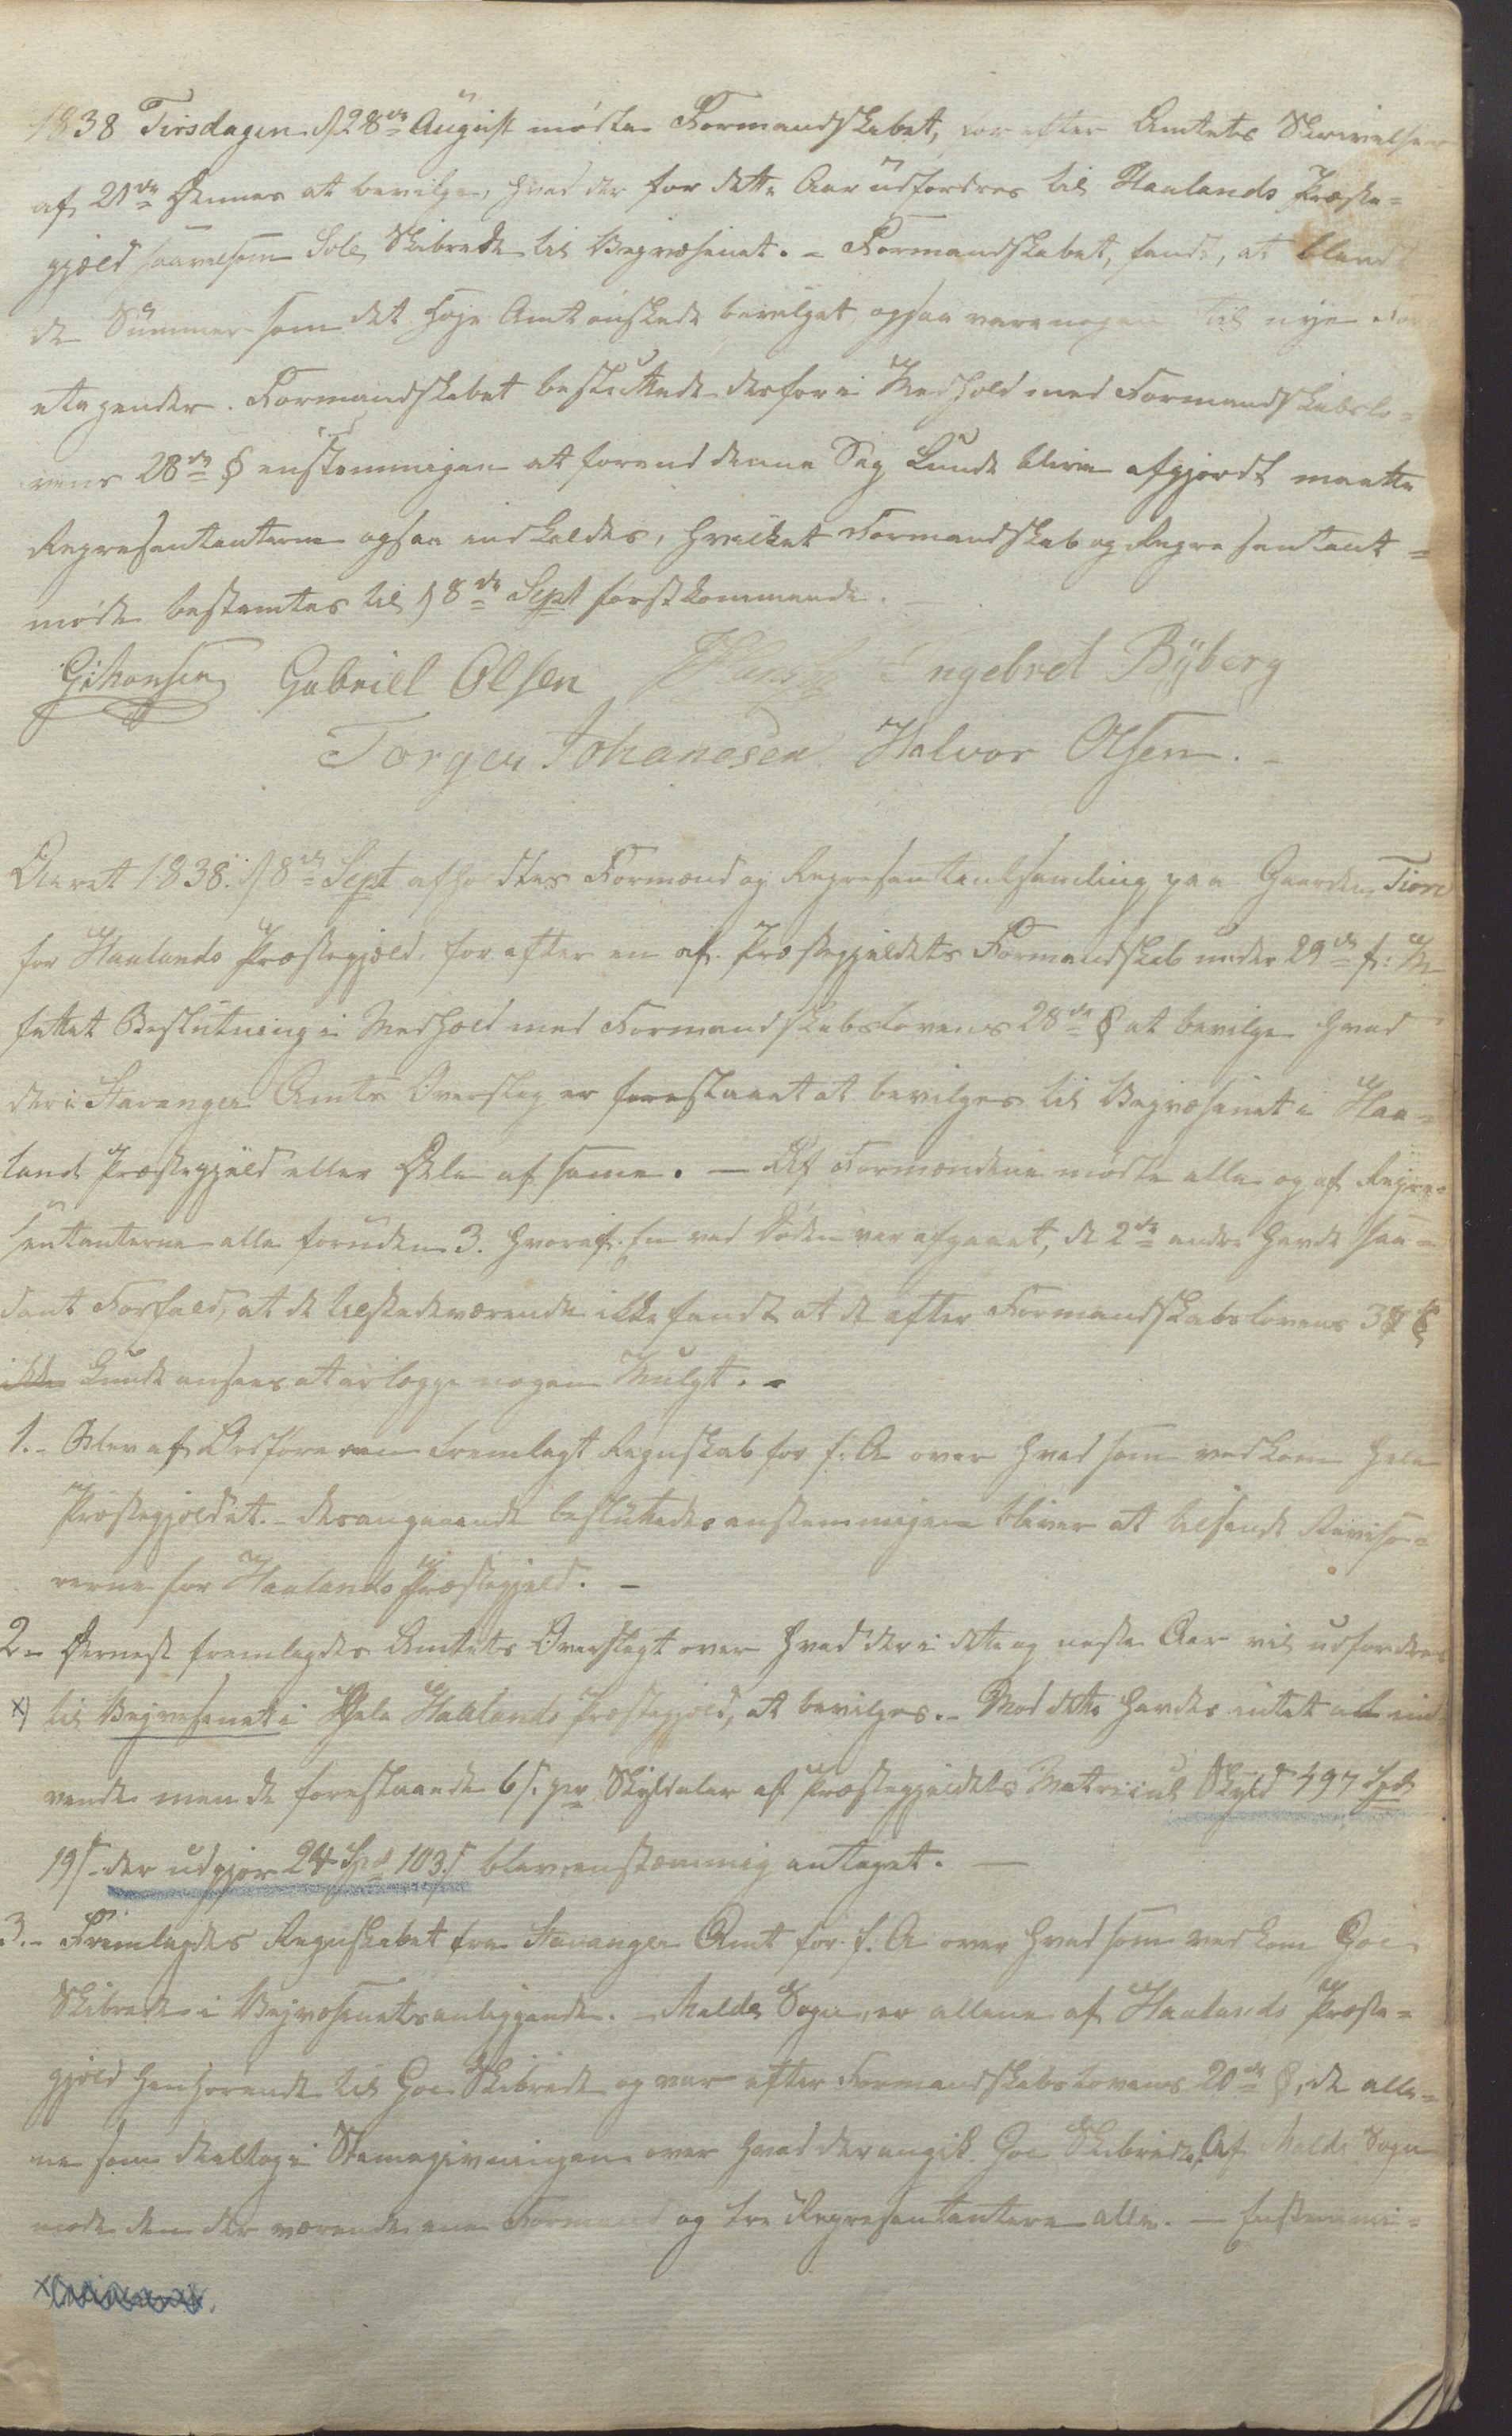 1838 Tirsdagen d 28de August mødte Formandskabet, for efter Amtets Skrivelser
af 21de Dennes at bevilge, hvad der for dette Aar udfordres til Haalands Præste-
gjæld saavelsom Sole Skibrede til Vejvæsenet. - Formandskabet, fandt, at blandt
de Summer som det høje Amt ønskede bevilget ogsaa vare nogen til nye For
etagender. Formandskabet besluttede derfor i Medhold med Formandskabslo-
vens 28de § enstemmigen at forend denne Sag kunde blive afgjordt maatte
Repræsentanterne ogsaa indkaldes, hvilket Formandskab og Repræsentant-
møde bestemtes til d 8de Sept førstkommende.
Gabriel Olsen Ingebret Byberg
Torger Johanesen Halvor Olsen.
Aaret 1838. d 8de Sept afholdtes Formænd og Repræsentantsamling paa Gaarden Tiore
for Haalands Præstegjæld, for efter en af Præstegjældets Formandskab under 29de f: M
fattet Beslutning i Medhold med Formandskabslovens 28de § at bevilge hvad
der i Stavanger Amts Overslag er forestaaet at bevilges til Vejvæsenet i Haa-
land Præstegjæld eller Dele af samme. - Af Formændene mødte alle og af Repræ-
sentanterne alle foruden 3. hvoraf En ved Døden var afgaaet, de 2de andre havde saa-
dant Forfald, at de tilstedeværende ikke fandt at de efter Formandskabslovens 38 §
ikke kunde ansees at ærlægge nogen Mulgt. -
1. - Blev af Ordføreren fremlagt Regnskab for f: A over hvad som vedkom hele
Præstegjeldet. - desangaaende besluttedes enstemmigen bliver at tilsende Reviso-
rerne for Haalands Præstegjæld. -
2 - Dernest fremlagdes Amtets Overslagt over hvad der i dette og neste Aar vil udfordres
x) til Vejvæsenet i Hele Haalands Præstegjæld, at bevilges. - Mod dette havdes intet at ind
vende men de forestaaende 6 s. per Skyldaler af Præstegjældets Matricul Skyld 497 Spd
19 s - der udgjør 24 Spd 103 s blev enstæmmig antaget. -
3. - Fremlagdes Regnskabet fra Stavanger Amt for f: A over hvad som vedkom Goe
Skibrede i Vejvæsenets anliggende. - Malde Sogn, er allene af Haalands Præste-
gjeld henhørende til Goe Skibrede og var efter Formandskabslovens 20de §, de alle-
ne som deeltog i Stemegivningen over hvad der angik Goe Skibrede, Af Malde Sogn
møde den der værende ene Formand og tre Repræsentantere alle. - Enstemmi-